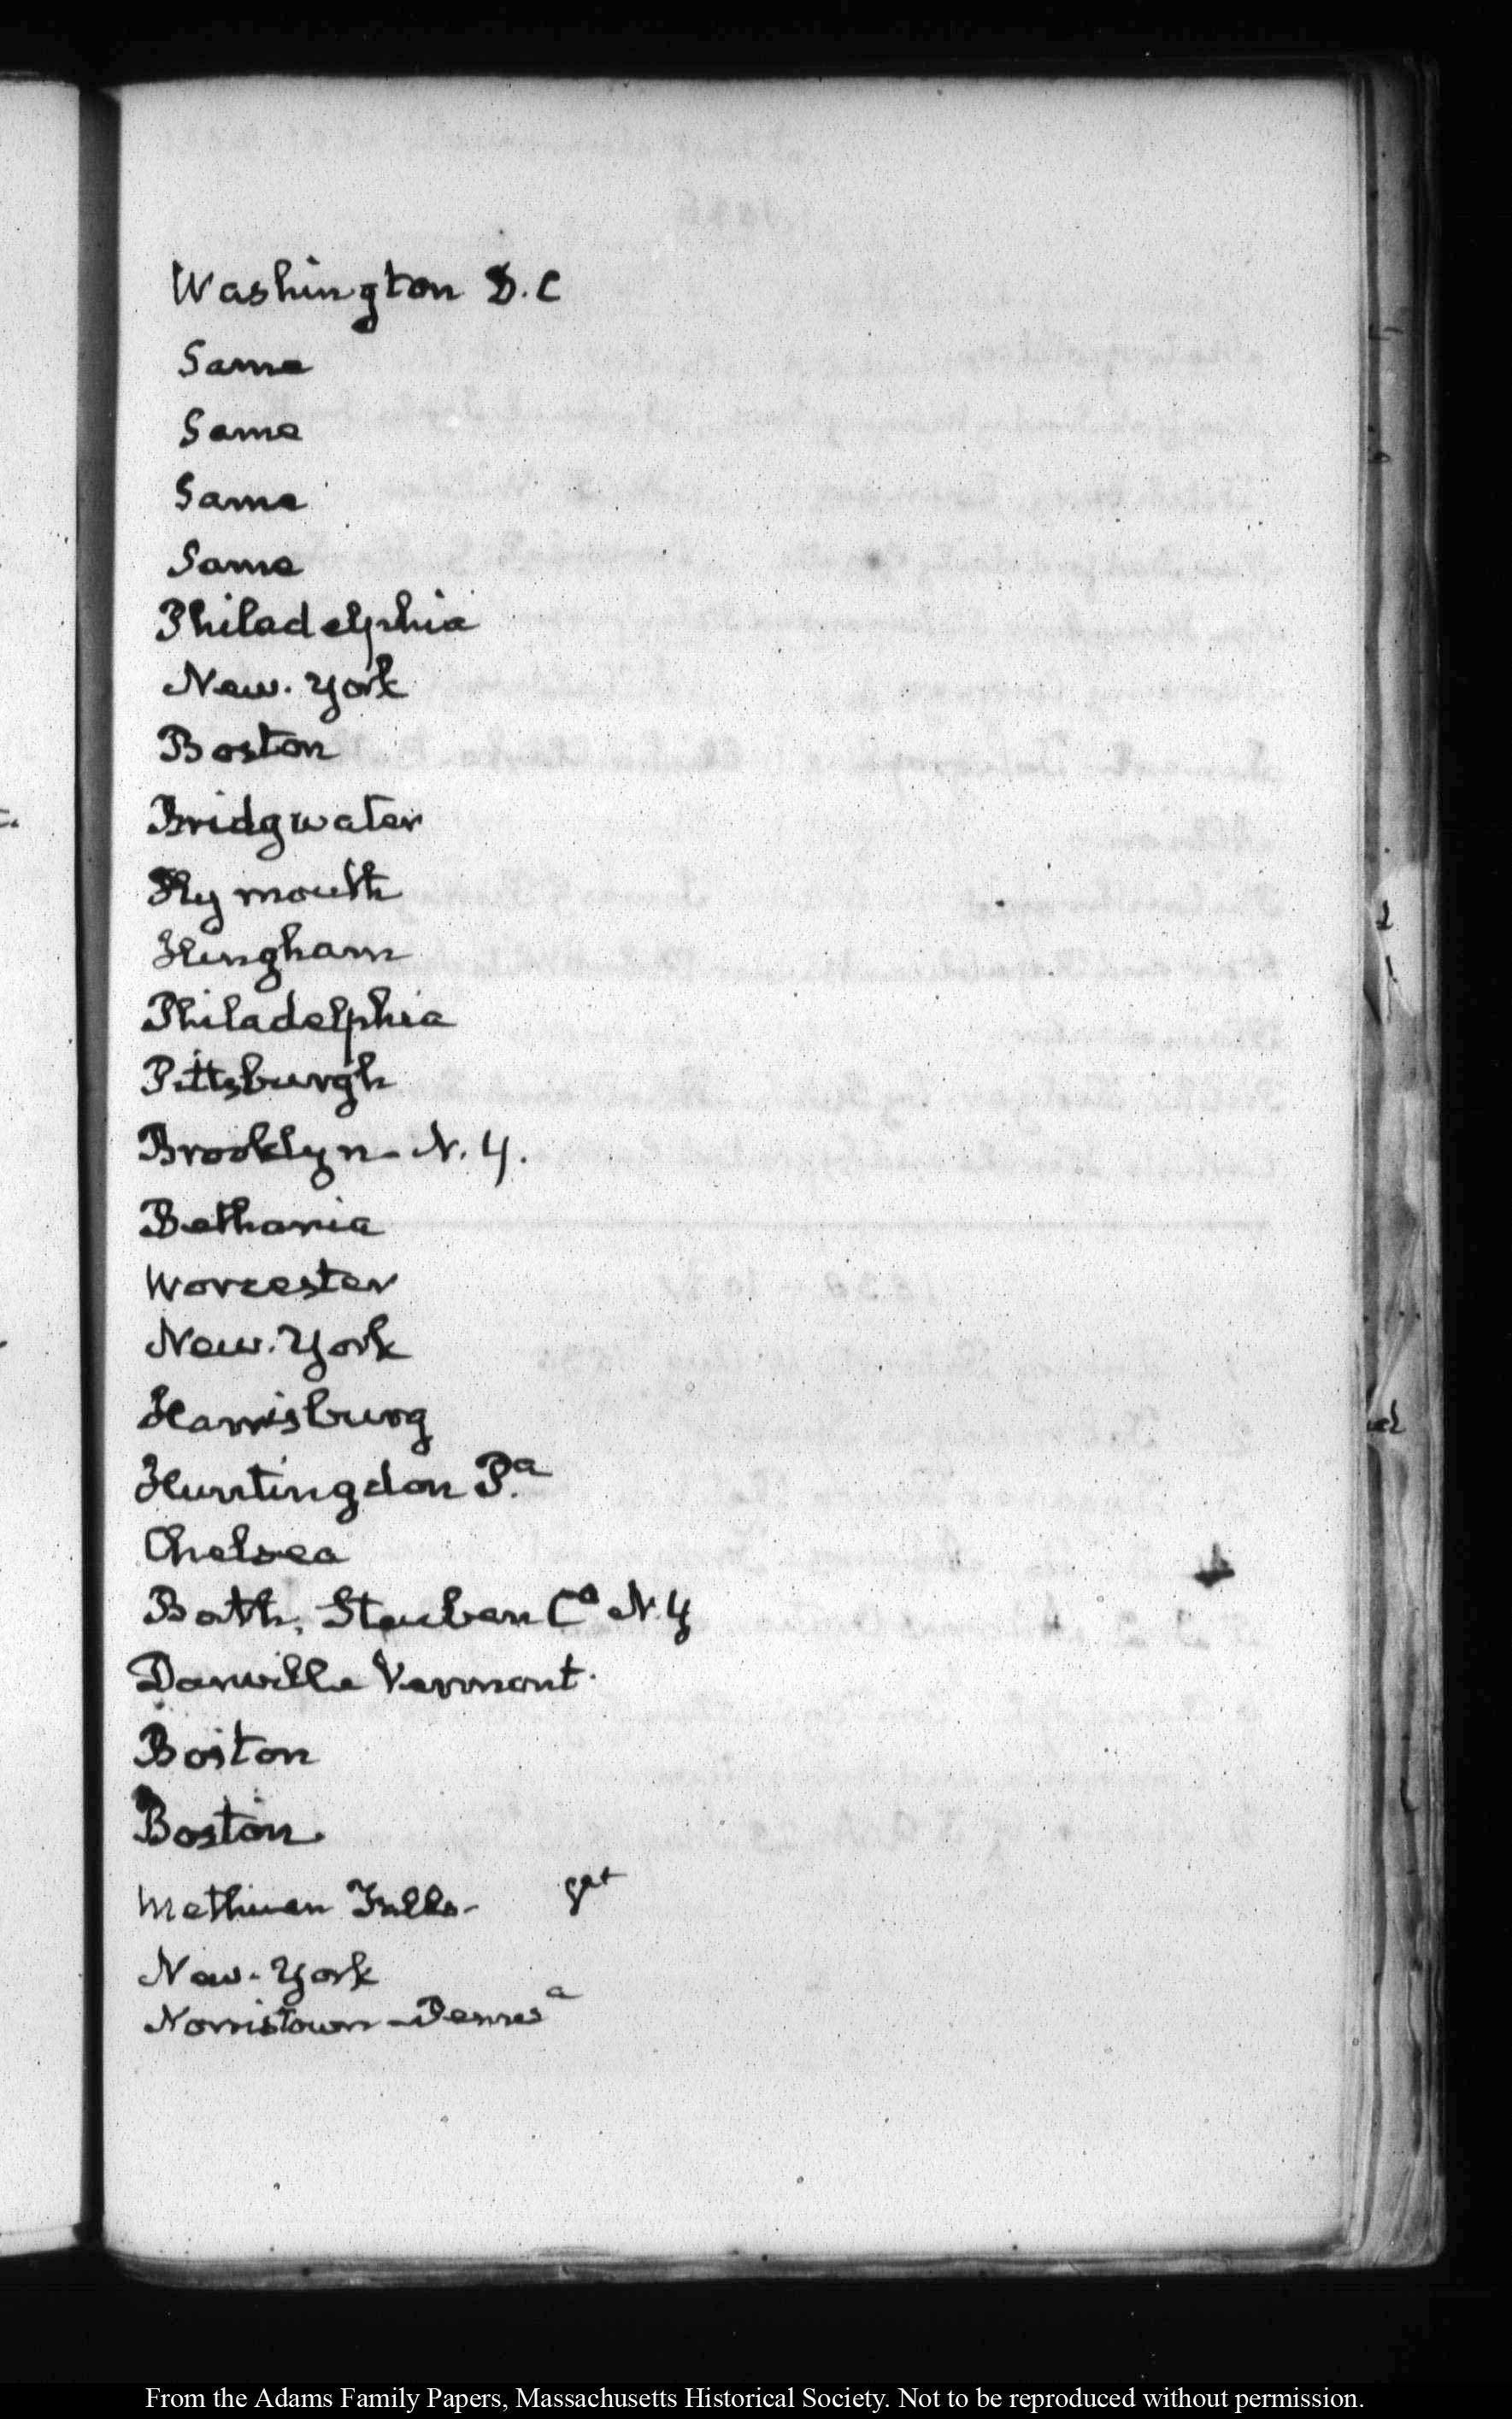 Washington D.C
Same
Same
Same
Same
Philadelphia
New-York
Boston
Bridgwater
Plymouth
Hingham
Philadelphia
Pittsburgh
Brooklyn - N.Y.
Bethania
Worcester
New-York
Harrisburg
Huntingdon Pa.
Chelsea
Bath, Steuben Co N.Y
Danville Vermont.
Boston
Boston.
Methuen Falls-
New-York
Norristown - Pennsa
From the Adams Family Papers, Massachusetts Historical Society. Not to be reproduced without permission.